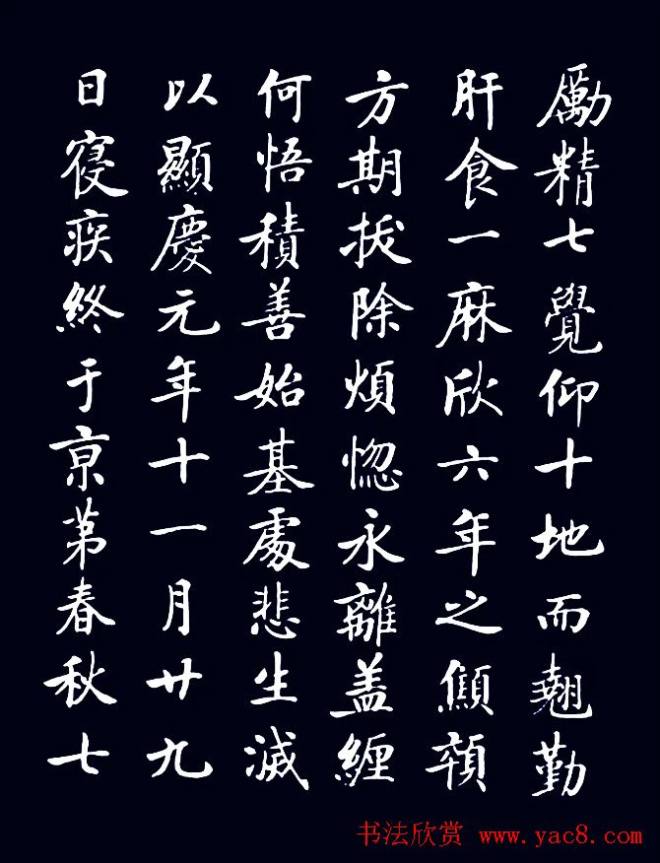 勵精七覺仰十地而翹勤
肝食一麻欣六年之顦顇
方期拔除煩惚永離盖纏
何悟積善始基處悲生滅
以顯慶元年十一月廿九
日寑疾終于亰苐春秋七
书法欣赏 www.yac8.com